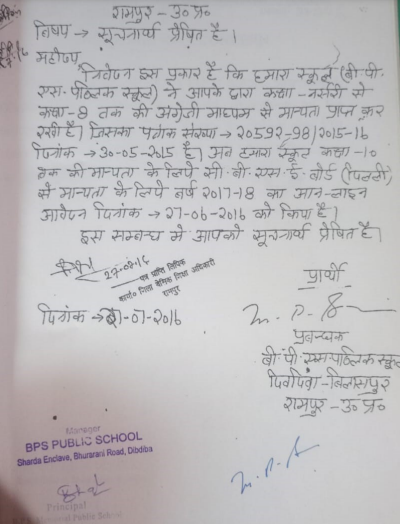 रामपुर - उ० प्र०
विषय → सूचनार्थ प्रेषित है।
महोदय
निवेदन इस प्रकार है कि हमारा स्कूल (बी० पी०
एस० पब्लिक स्कूल) ने आपके द्वारा कक्षा - नर्सरी से
कक्षा - 8 तक की अंग्रेजी माध्यम से मान्यता प्राप्त कर
रखी है। जिसका पत्रांक संख्या → 20592-98/2015-16
दिनांक → 30-05-2015 है। अब हमारा स्कूल कक्षा - 10
तक की मान्यता के लिये सी० बी० एस० ई० बोर्ड (दिल्ली)
से मान्यता के लिये वर्ष 2017-18 का आन-लाइन
आवेदन दिनांक → 27-06-2016 को किया है।
इस सम्बन्ध मे आपको सूचनार्थ प्रेषित है।
पत्र प्राप्ति लिपिक
कार्या० जिला बेसिक शिक्षा अधिकारी
रामपुर
प्रार्थी
दिनांक → -07-2016
प्रबन्धक
बी० पी० एस० पब्लिक स्कूल
दिबदिबा - बिलासपुर
रामपुर - उ० प्र०
Manager
BPS PUBLIC SCHOOL
Sharda Enclave, Bhurarani Road, Dibdiba
Principal
Public School